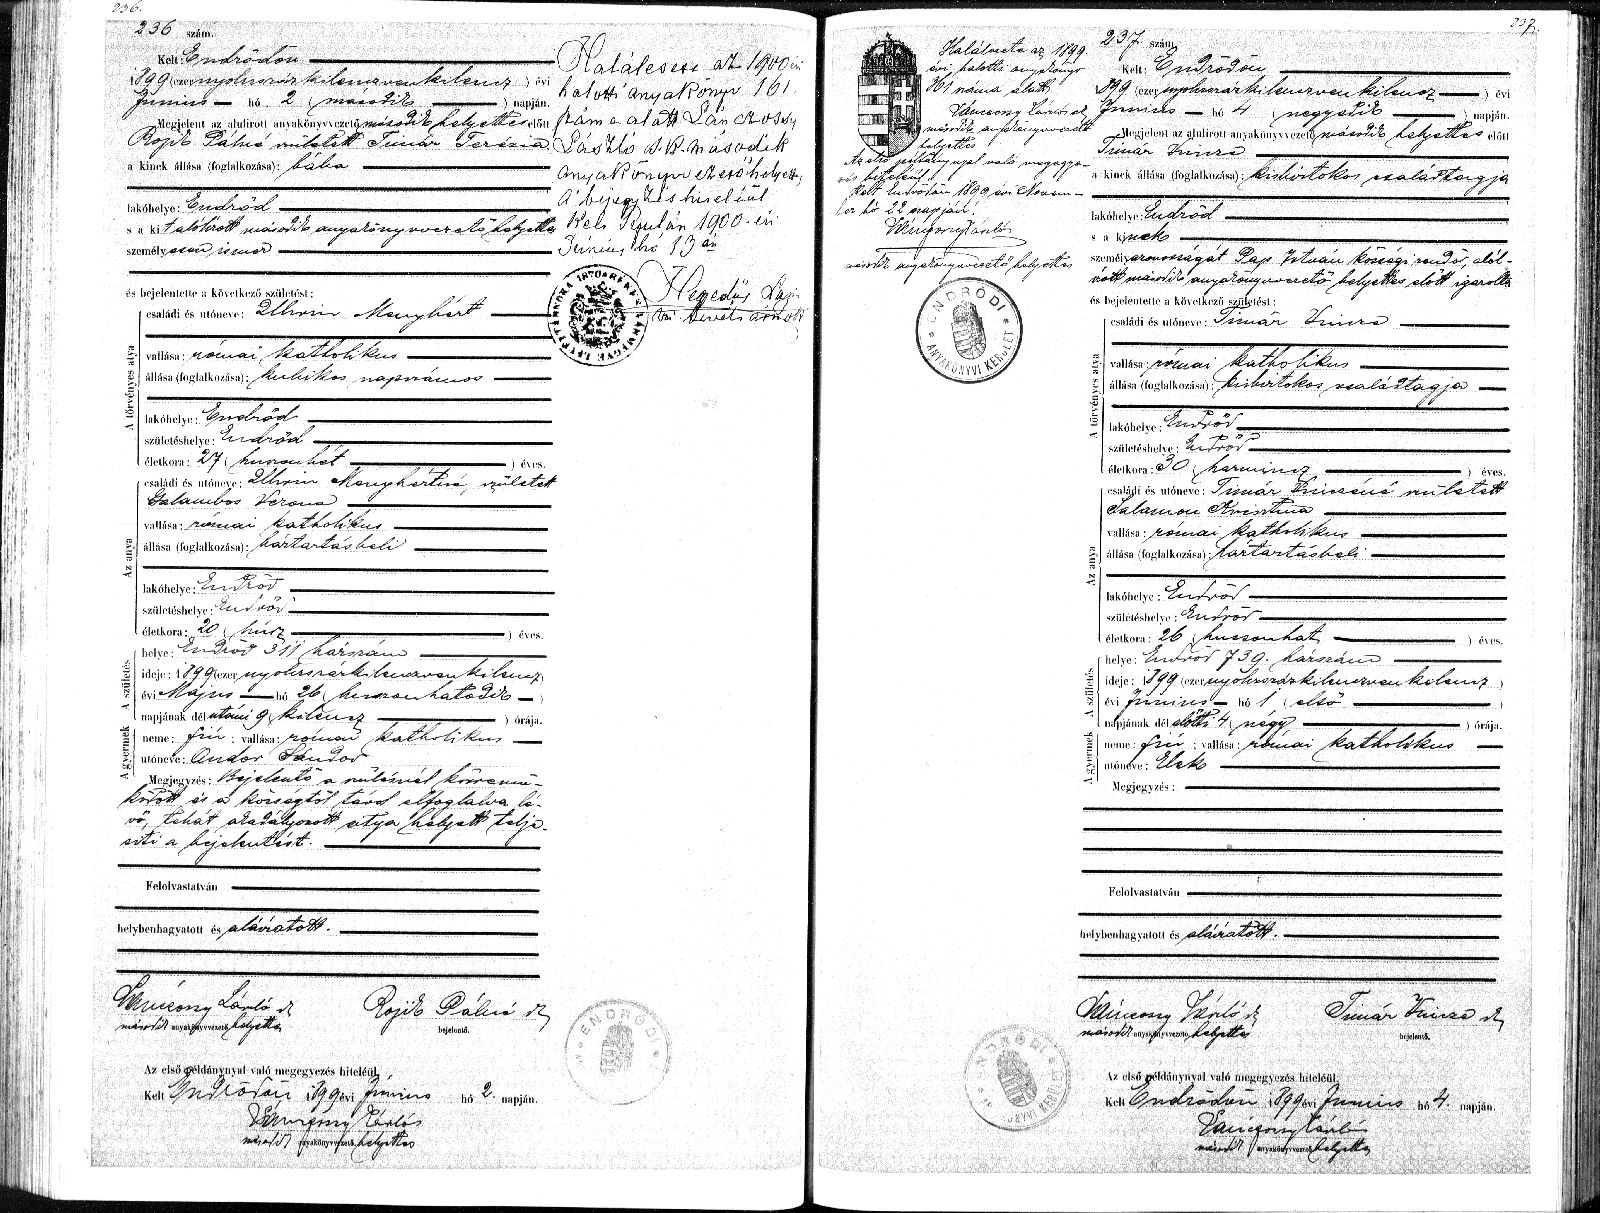 236.
236 szám.
Kelt: Endrődön
1899 (ezer nyolcszázkilencvenkilencz) évi
Június hó 2 (második) napján.
Megjelent az alulirott anyakönyvvezető második helyettes előtt
Rojik Pálné született Timár Terézia
a kinek állása (foglalkozása): bába
lakóhelye: Endrőd
s a kit alólirott második anyakönyvvezető helyettes
személyesen ismer
és bejelentette a következő születést:
A törvényes atya
családi és utóneve: Menyhért
vallása: római katholikus
állása (foglalkozása): kubikos napszámos
lakóhelye: Endrőd
születéshelye: Endrőd
életkora: 27 (huszonhét) éves.
Az anya
családi és utóneve: Menyhértné, született
Galambos Verona
vallása: római katholikus
állása (foglalkozása): háztartásbeli
lakóhelye: Endrőd
születéshelye: Endrőd
életkora: 20 (húsz) éves.
A születés
helye: Endrőd 311 házszám
ideje: 1899 (ezer nyolcszázkilencvenkilencz)
évi Május hó 26 (huszonhatodik)
napjának délutáni 9 (kilencz) órája.
A gyermek
neme: fiú; vallása: római katholikus
utóneve: Andor Sándor
Megjegyzés: Bejelentő a szülésnél közremű-
ködött és a községtől távol elfoglalva lé-
vő, tehát akadályozott atya helyett telje-
síti a bejelentést.
Felolvastatván
helybenhagyatott és aláiratott.
Váncsony László sk
második anyakönyvvezető helyettes
Rojik Pálné sk
bejelentő.
Az első példánynyal való megegyezés hiteléül
Kelt Endrődön 1899 évi Június hó 2. napján.
második anyakönyvvezető helyettes
Haláleset az 1900 évi
halotti anyakönyv 161.
száma alatt
László s.k. második
anyakönyvvezető helyettes
A bejegyzés hiteléül
Kelt Gyulán 1900 évi
Június hó 13 án
Hegedűs
ENDRŐDI
237.
237 szám
Kelt: Endrődön
1899 (ezer nyolcszázkilencvenkilencz) évi
Június hó 4 (negyedik) napján.
Megjelent az alulirott anyakönyvvezető második helyettes előtt
Timár Imre
a kinek állása (foglalkozása): kisbirtokos családtagja
lakóhelye: Endrőd
s a kinek
személyazonosságát Pap István községi rendőr, alól-
irott második anyakönyvvezető helyettes előtt igazolta
és bejelentette a következő születést:
A törvényes atya
családi és utóneve: Timár Imre
vallása: római katholikus
állása (foglalkozása): kisbirtokos családtagja
lakóhelye: Endrőd
születéshelye: Endrőd
életkora: 30 (harmincz) éves.
Az anya
családi és utóneve: Timár Imréné született
Salamon Krisztina
vallása: római katholikus
állása (foglalkozása): háztartásbeli
lakóhelye: Endrőd
születéshelye: Endrőd
életkora: 26 (huszonhat) éves.
A születés
helye: Endrőd 739. házszám
ideje: 1899 (ezer nyolcszázkilencvenkilencz)
évi Június hó 1 (első)
napjának délelőtti 4 (négy) órája.
A gyermek
neme: fiú; vallása: római katholikus
utóneve: Elek
Megjegyzés:
Felolvastatván
helybenhagyatott és aláiratott.
Váncsony László sk
második anyakönyvvezető helyettes
Timár Imre sk
bejelentő.
Az első példánynyal való megegyezés hiteléül
Kelt Endrődön 1899 évi Június hó 4. napján.
második anyakönyvvezető helyettes
Halálesete az 1899
évi halotti anyakönyv
161 száma alatt.
Váncsony László sk
második anyakönyvvezető
helyettes
Az első példánynyal való megegye-
zés hiteléül
Kelt Endrődön 1899 évi Novem-
ber hó 22 napján.
második anyakönyvvezető helyettes
ENDRŐDI
ANYAKÖNYVI KERÜLET
ENDRŐDI
ANYAKÖNYVI KERÜLET